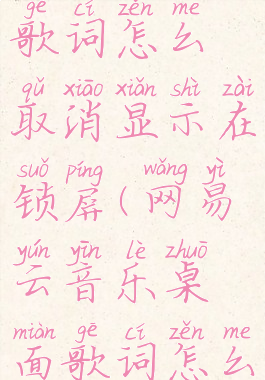 gē cí zěn me
歌词怎么
qǔ xiāo xiǎn shì zài
取消显示在
suǒ píng wǎng yì
锁屏(网易
yún yīn lè zhuō
云音乐桌
miàn gē cí zěn me
面歌词怎么